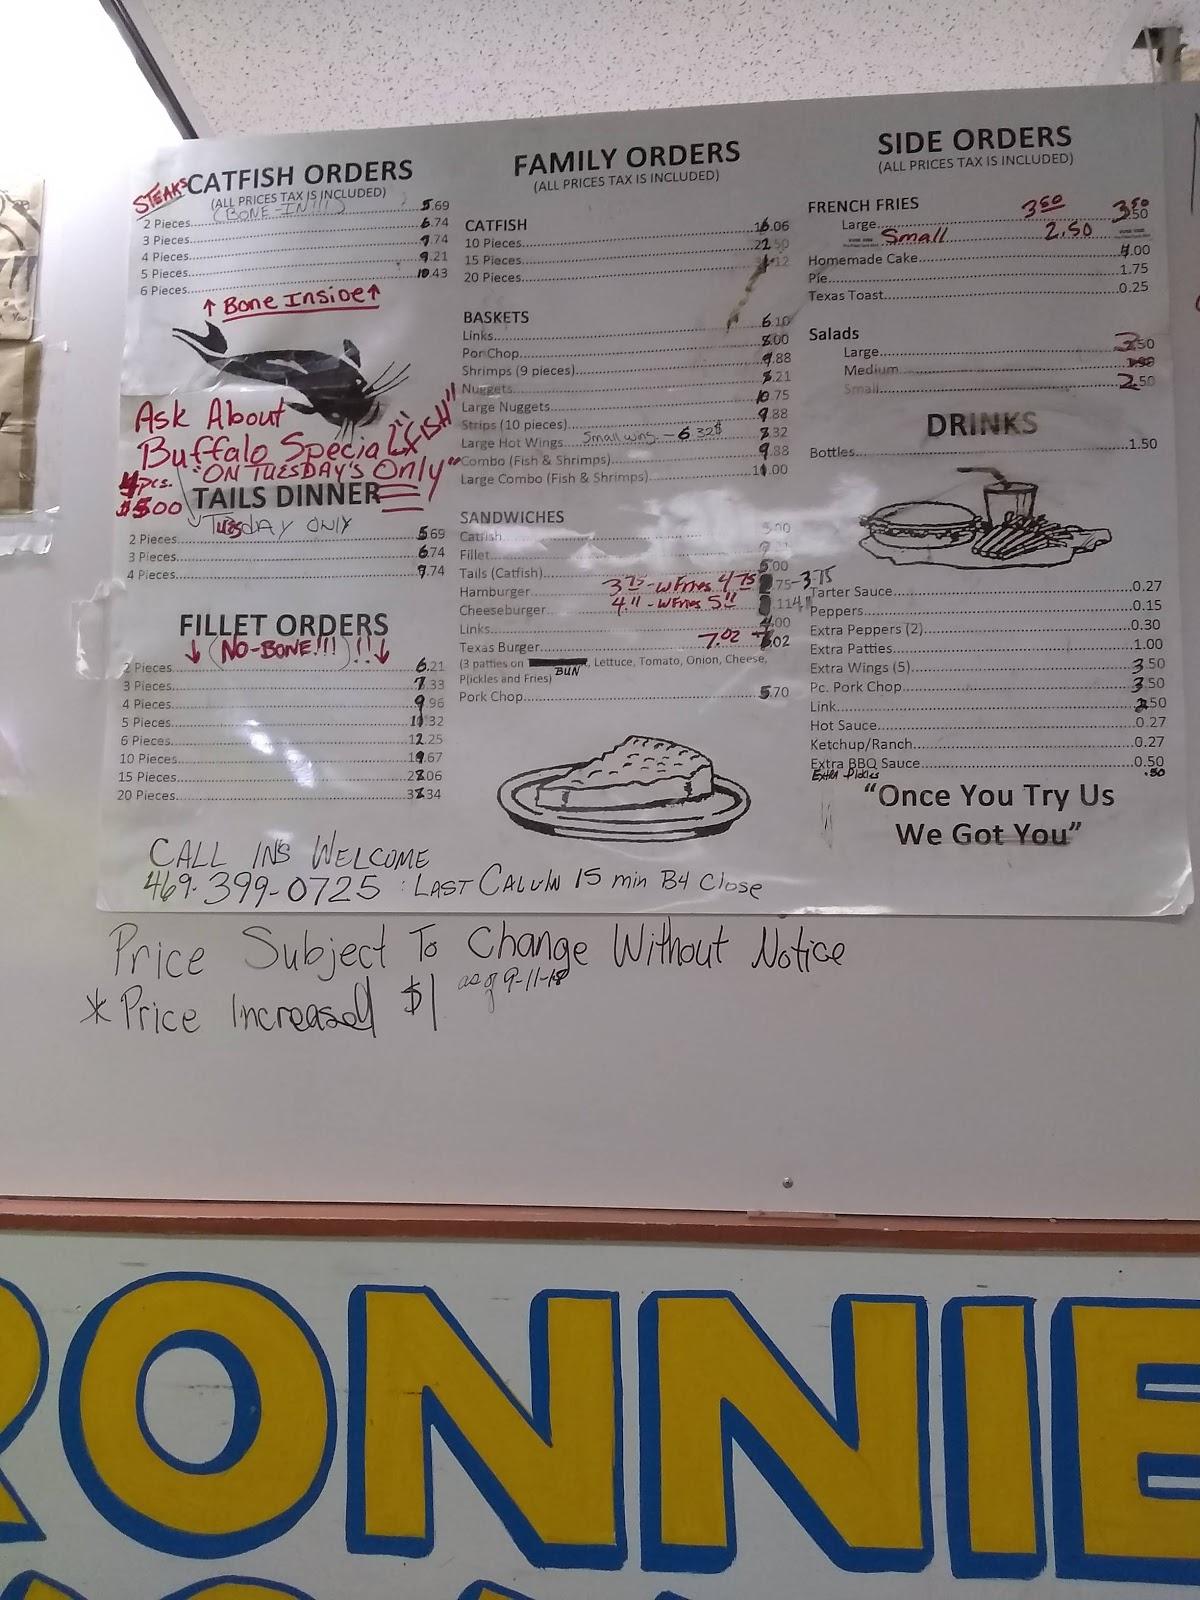 STEAKS CATFISH ORDERS
(ALL PRICES TAX IS INCLUDED)
(BONE-IN!!!)
2 Pieces 5.69
3 Pieces 6.74
4 Pieces 9.74
5 Pieces 9.21
6 Pieces 10.43
↑ Bone Inside ↑
Ask About
Buffalo Special "FISH"
"ON TUESDAY'S Only"
4pcs.
$5.00
TAILS DINNER
TuesDAY ONLY
2 Pieces 5.69
3 Pieces 6.74
4 Pieces 9.74
FILLET ORDERS
↓ (NO-BONE!!!) !! ↓
2 Pieces 6.21
3 Pieces 7.33
4 Pieces 9.96
5 Pieces 10.32
6 Pieces 12.25
10 Pieces 19.67
15 Pieces 28.06
20 Pieces 38.34
FAMILY ORDERS
(ALL PRICES TAX IS INCLUDED)
CATFISH
10 Pieces 16.06
15 Pieces 22.50
20 Pieces
BASKETS
Links 6.10
Por Chop 8.00
Shrimps (9 pieces) 9.88
Nuggets 8.21
Large Nuggets 10.75
Strips (10 pieces) 9.88
Large Hot Wings Small wing - 6.32$ 8.32
Combo (Fish & Shrimps) 9.88
Large Combo (Fish & Shrimps) 11.00
SANDWICHES
Catfish 5.00
Fillet
Tails (Catfish) 5.00
Hamburger 3.75 - w Fries 4.75 .75 - 3.75
Cheeseburger 4.11 - w Fries 5.11 .11 4.11
Links 4.00
Texas Burger 7.02 7.02
(3 patties on BUN, Lettuce, Tomato, Onion, Cheese,
P(ickles and Fries)
Pork Chop 5.70
SIDE ORDERS
(ALL PRICES TAX IS INCLUDED)
FRENCH FRIES
Large 3.50 3.50
Small 2.50
Homemade Cake 4.00
Pie 1.75
Texas Toast 0.25
Salads
Large 3.50
Medium
Small 2.50
DRINKS
Bottles 1.50
Tarter Sauce 0.27
Peppers 0.15
Extra Peppers (2) 0.30
Extra Patties 1.00
Extra Wings (5) 3.50
Pc. Pork Chop 3.50
Link 2.50
Hot Sauce 0.27
Ketchup/Ranch 0.27
Extra BBQ Sauce 0.50
Extra Pickles .50
"Once You Try Us
We Got You"
CALL IN'S WELCOME
469-399-0725 : LAST CALL IN 15 min B4 Close
Price Subject To Change Without Notice
* Price Increased $1 as of 9-11-18
RONNIE